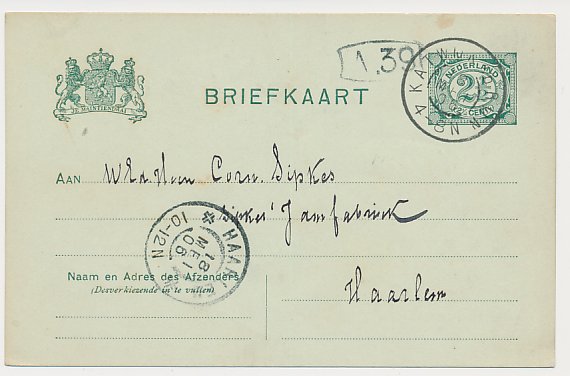 JE MAINTIENDRAI
1.39
NEDERLAND
2½
2½ CENT
8-9 N
BRIEFKAART
AAN WEd. Heer Corn. Sipkes
Sipkes' Jamfabriek
Haarlem
HAARLEM
18 MEI 06
10-12N
Naam en Adres des Afzenders
(Desverkiezende in te vullen)